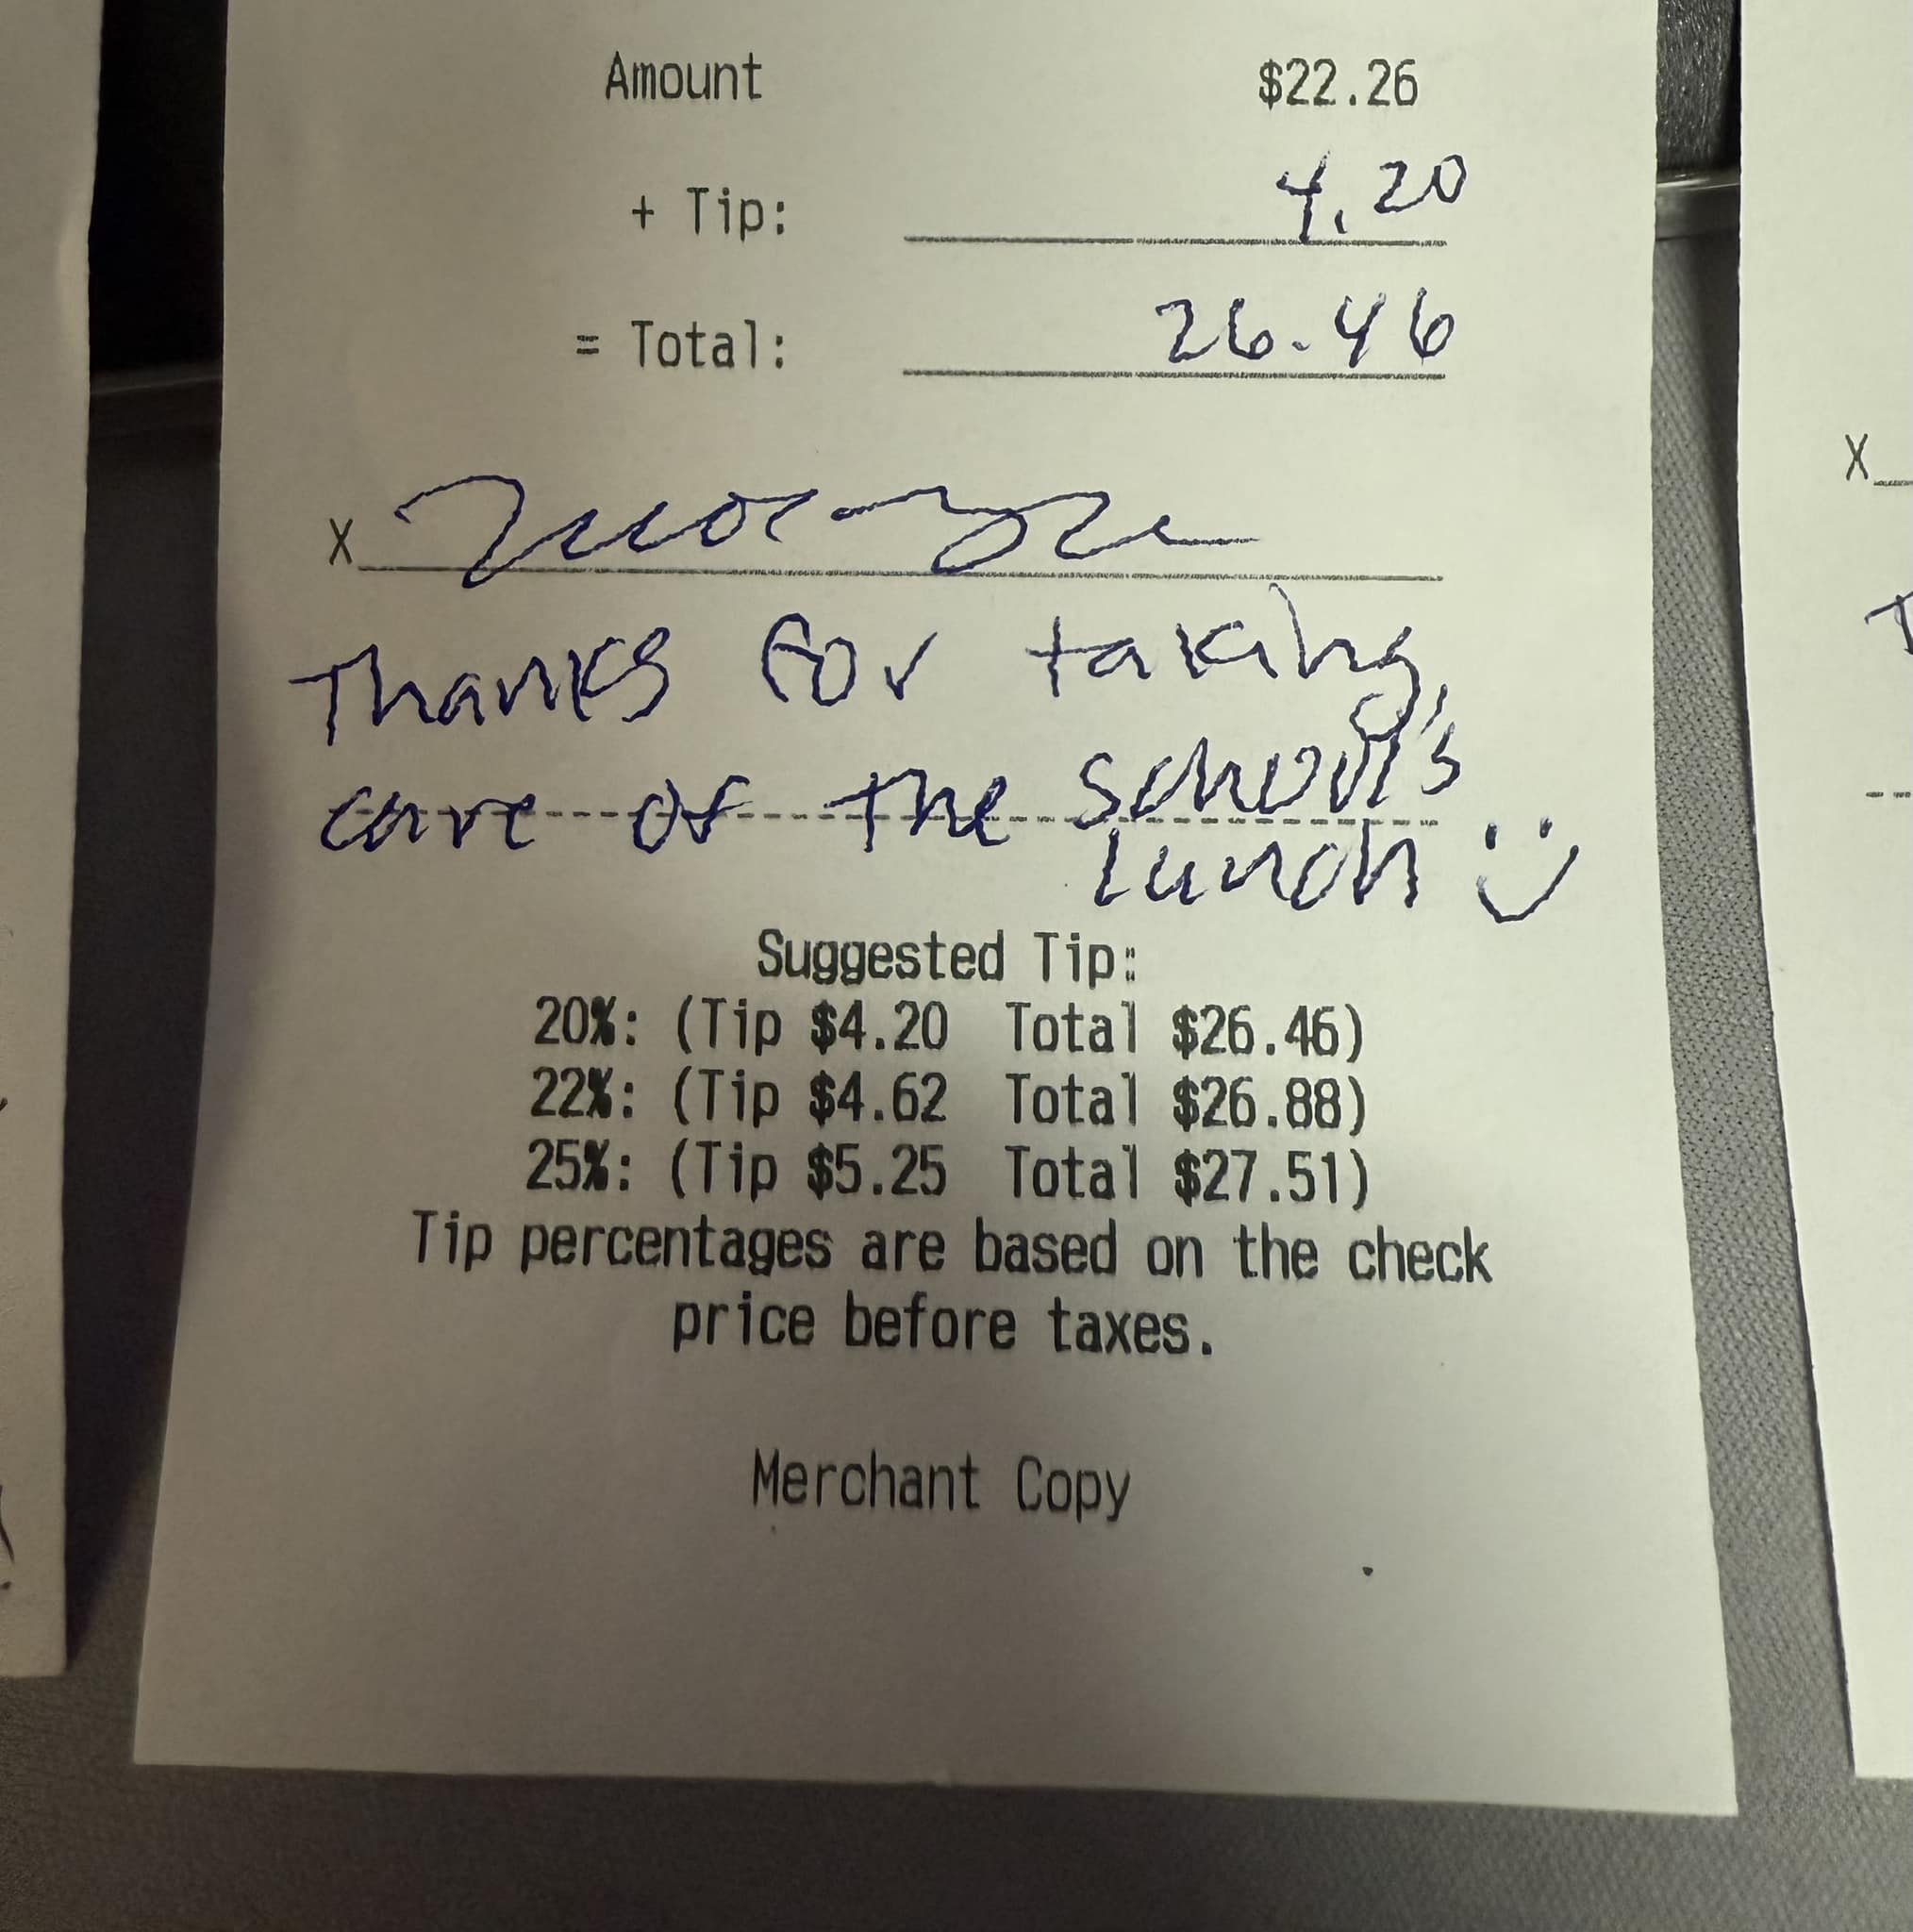 Amount $22.26
+ Tip: 4.20
= Total: 26.46
X
Thanks for taking
care of the school's
lunch :)
Suggested Tip:
20%: (Tip $4.20 Total $26.46)
22%: (Tip $4.62 Total $26.88)
25%: (Tip $5.25 Total $27.51)
Tip percentages are based on the check
price before taxes.
Merchant Copy
X